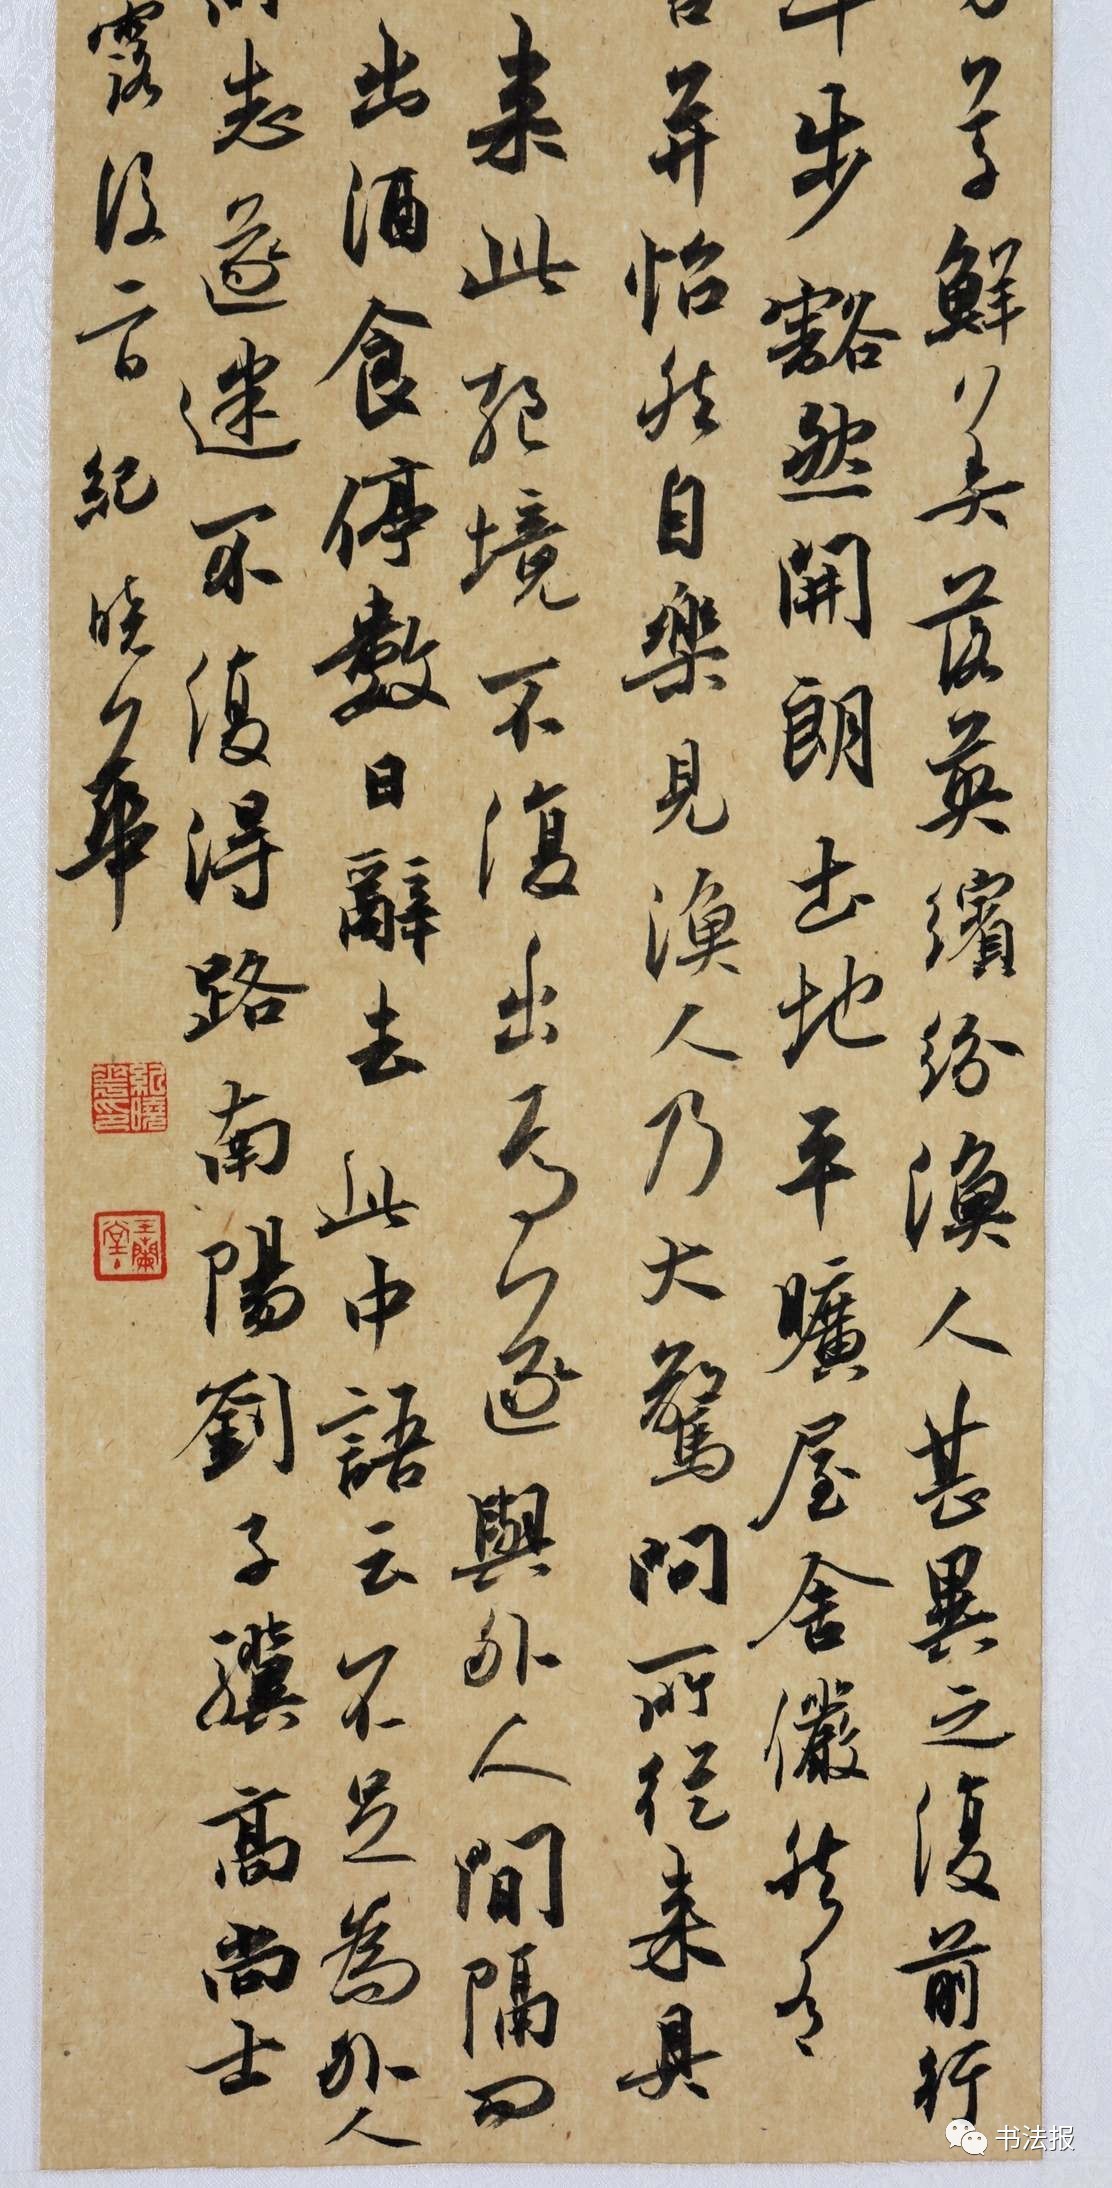 草鮮美落英繽紛漁人甚異之復前行
步豁然開朗土地平曠屋舍儼然有
并怡然自樂見漁人乃大驚問所從来具
来此絕境不復出焉遂與外人間隔問
出酒食停數日辭去此中語云不足為外人
志遂迷不復得路南陽劉子驥高尚士
露後二日紀曉華
紀曉華印
玉蘭堂
书法报